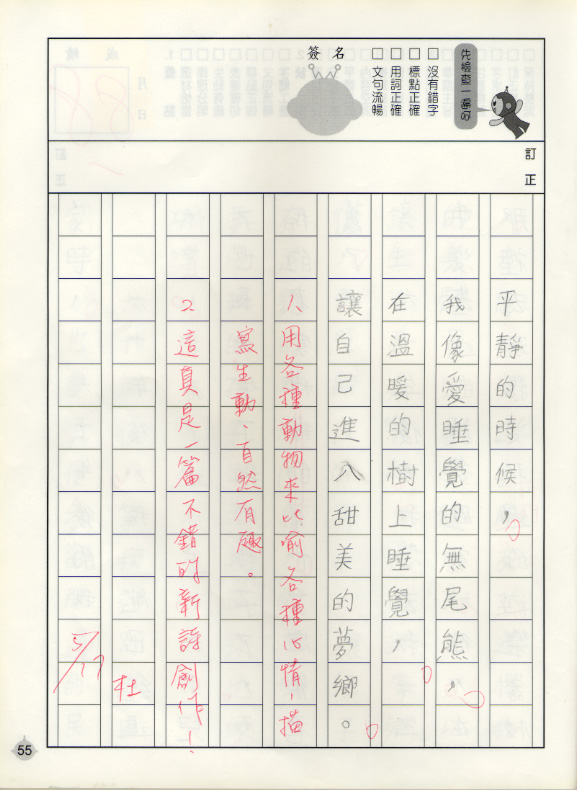 先檢查一遍好
□沒有錯字
□標點正確
□用詞正確
□文句流暢
簽名
訂正
平靜的時候，
我像愛睡覺的無尾熊，
在溫暖的樹上睡覺，
讓自己進入甜美的夢鄉。
1、用各種動物來比喻各種心情，描
寫生動、自然有趣。
2、這真是一篇不錯的新詩創作！
杜
5/17
55